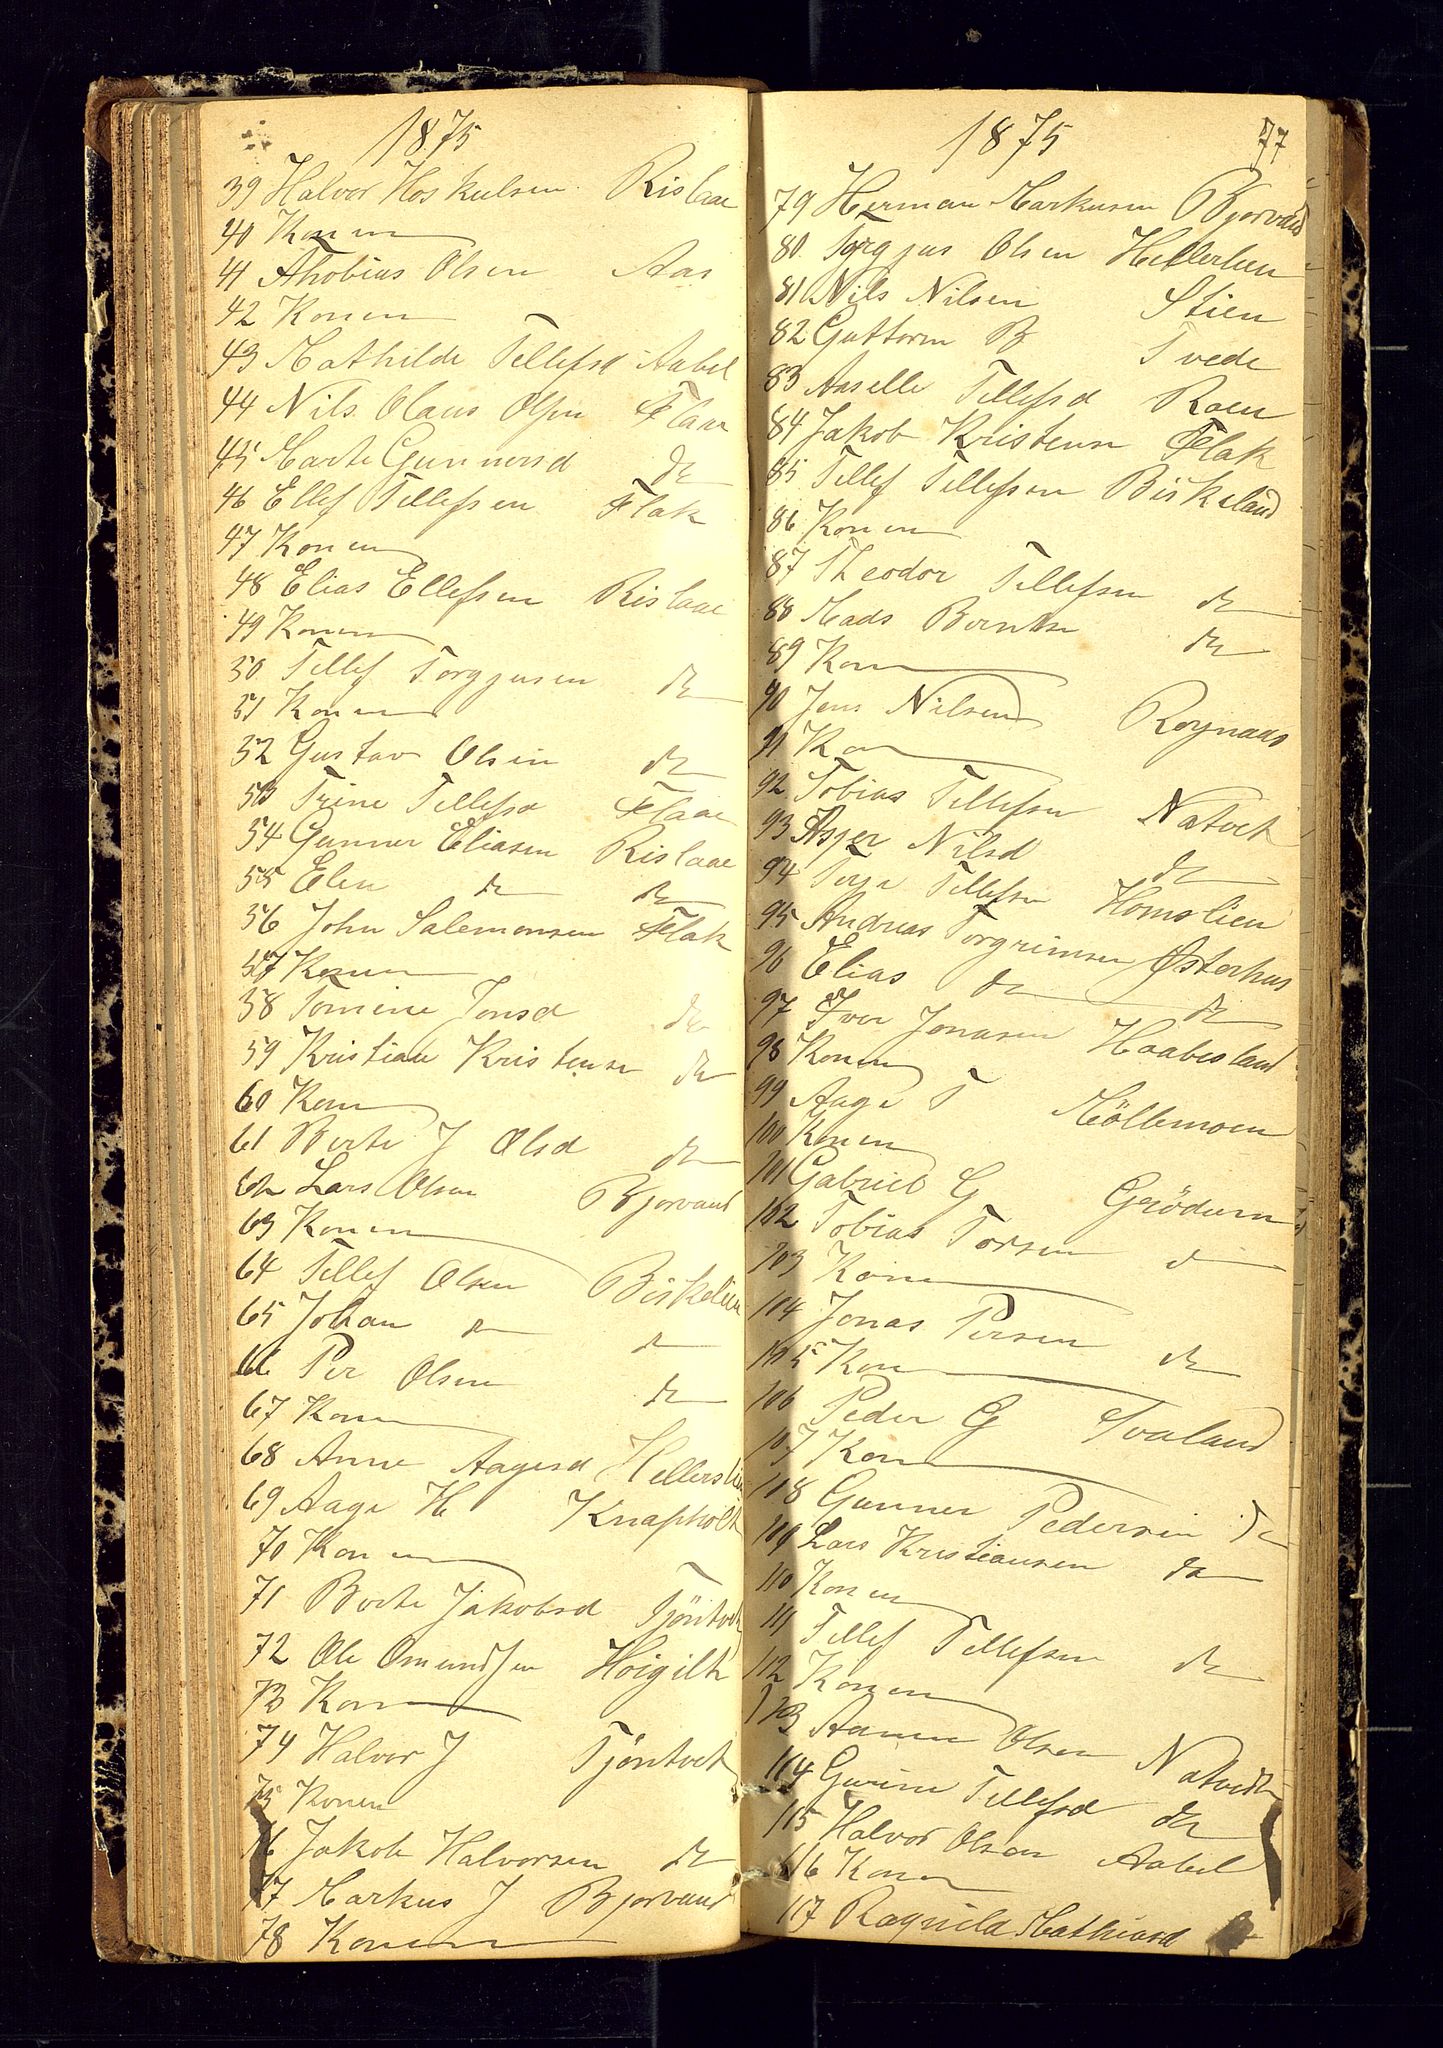 1875
39 Halvor Hoskulsen Rislaae
40 Konen
41 Thobias Olsen Aas
42 Konen
43 Mathilde Tellefsd Aabel
44 Nils Olaus Olsen Flaae
45 Marte Gunnersd do
46 Ellef Tellefsen Flak
47 Konen
48 Elias Ellefsen Rislaae
49 Konen
50 Tellef Torgjusen do
51 Konen
52 Gustav Olsen do
53 Trine Tellefsd Flaae
54 Gunner Eliasen Rislaae
55 Elen do do
56 John Salemonsen Flak
57 Konen
58 Tomine Jonsd do
59 Kristian Kristensen do
60 Konen
61 Berte J Olsd do
62 Lars Olsen Bjorvand
63 Konen
64 Tellef Olsen Birkelien
65 Johan do do
66 Per Olsen do
67 Konen
68 Anne Aagesd Hellerslien
69 Aage H Knapholt
70 Konen
71 Berte Jakobsd Tjöntvet
72 Ole Omundsen Höigilt
73 Konen
74 Halvor J Tjöntvet
75 Konen
76 Jakob Halvorsen do
77 Markus J Bjorvand
78 Konen
1875 77
79 Herman Markusen Bjorvand
80 Torgjus Olsen Hellerlien
81 Nils Nilsen Stien
82 Guttorm B Tvede
83 Anselle Tellefsd Roen
84 Jakob Kristensn Flak
85 Tellef Tellefsen Birkeland
86 Konen
87 Theodor Tellefsen do
88 Mads Berntsn do
89 Kon
90 Jens Nilsen Roynaas
91 Kon
92 Tobias Tellefsen Natvet
93 Asjer Nilsd do
94 Terje Tellefsn Homslien
95 Andreas Torgrimsen Østerhus
96 Elias do do
97 Iver Jonasen Haabesland
98 Konen
99 Aage T Möllemoen
100 Konen
101 Gabriel G Grödum
102 Tobias Torsen do
103 Konen
104 Jonas Persen
105 Kon do
106 Peder G Tvaland
107 Kon
108 Gunner Pedersen do
109 Lars Kristiansen do
110 Konen
111 Tellef Tellefsen do
112 Konen
113 Aanen Olsen Natvedt
114 Gurine Tellefsd do
115 Halvor Olsen Aabel
116 Konen
117 Ragnild Mathiasd